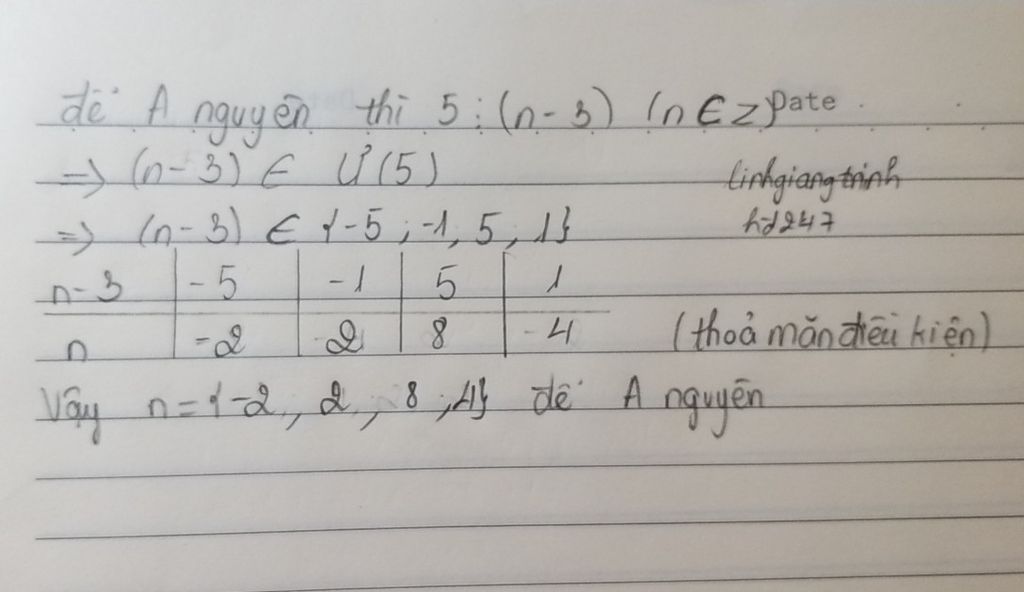 để A nguyên thì 5 ⋮ (n-3) (n ∈ Z) Date
=> (n-3) ∈ Ư(5)
linhgiangtrinh
=> (n-3) ∈ {-5; -1, 5, 1}
hd247
n-3 | -5 | -1 | 5 | 1
n | -2 | 2 | 8 | 4 (thoả mãn điều kiện)
Vậy n = {-2, 2, 8; 4} để A nguyên